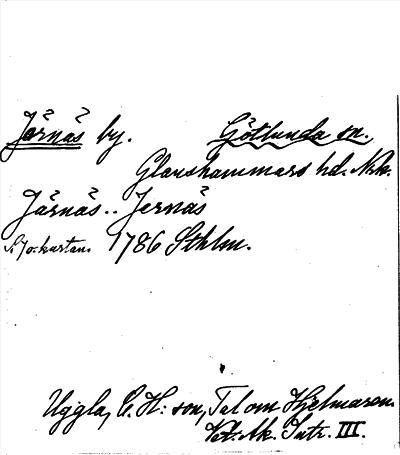 Järnäs by. Götlunda sn.
Glanshammars hd. Nrk.
Järnäs.. Jernäs
Sjö-kartan. 1786 Sthlm.
Uggla, C. H:son, Tal om Hjelmaren.
Vet. Ak. Intr. III.